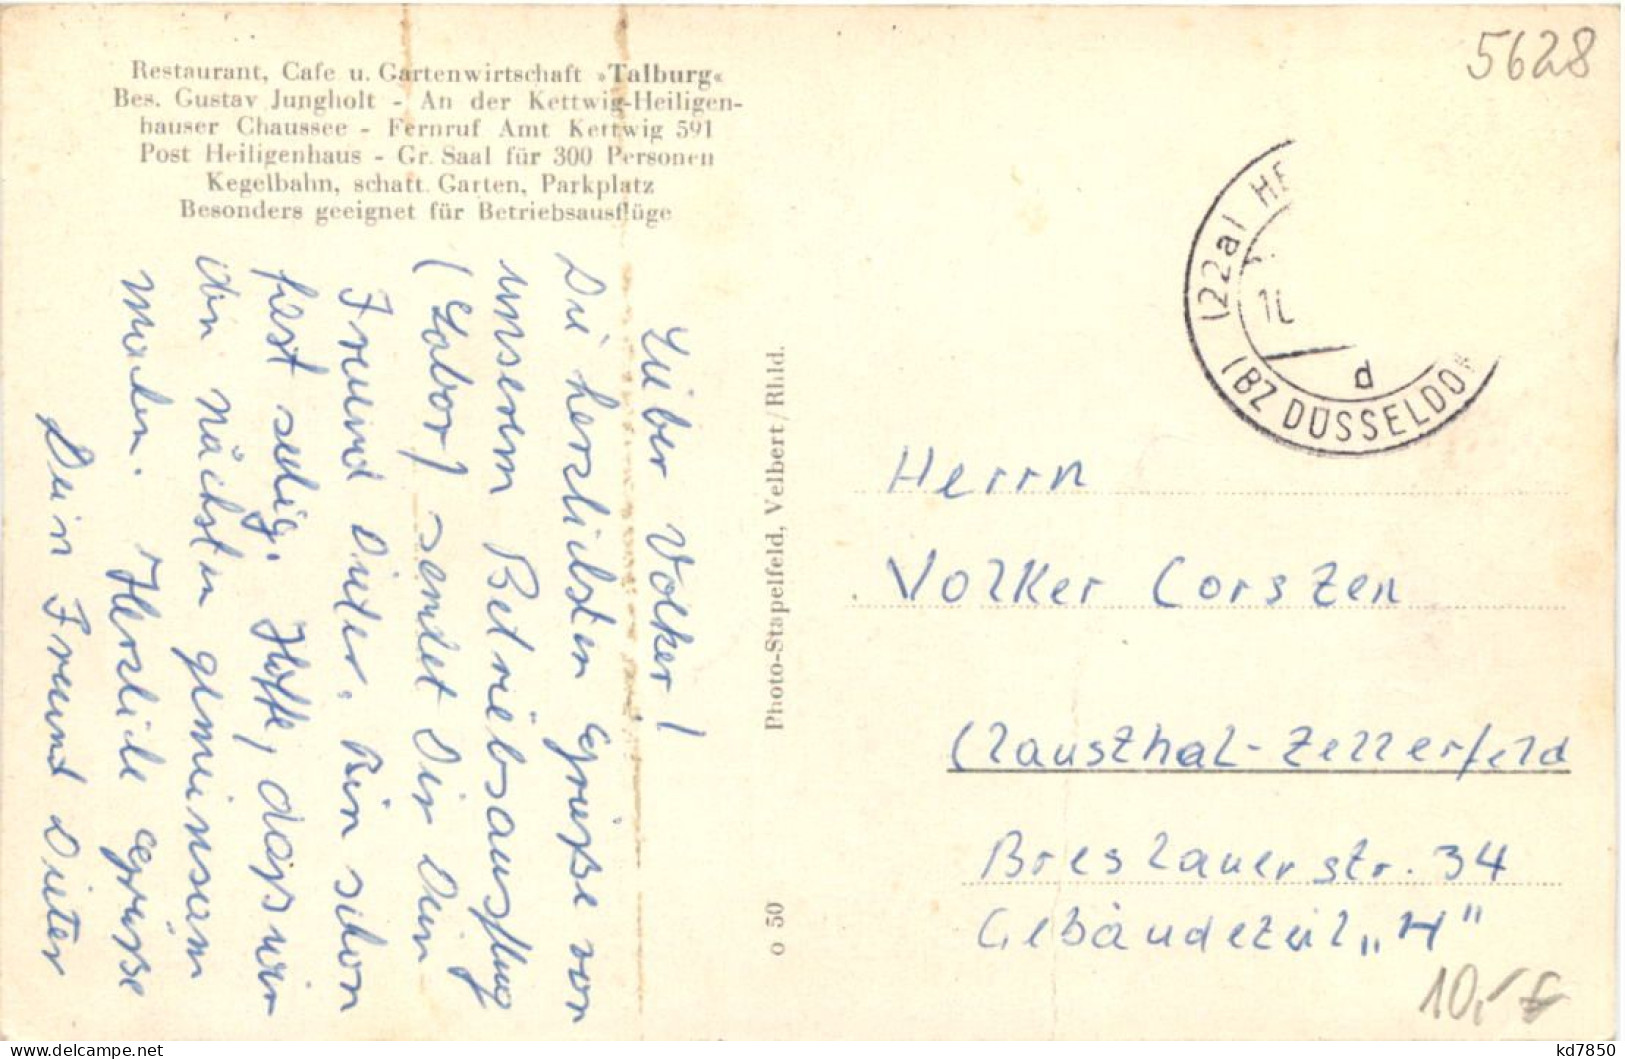 Restaurant, Cafe u. Gartenwirtschaft »Talburg«
Bes. Gustav Jungholt - An der Kettwig-Heiligen-
hauser Chaussee - Fernruf Amt Kettwig 591
Post Heiligenhaus - Gr. Saal für 300 Personen
Kegelbahn, schatt. Garten, Parkplatz
Besonders geeignet für Betriebsausflüge
Lieber Volker!
Die herzlichsten Grüße von
unserem Betriebsausflug
(Labor) sendet Dir Dein
Freund Dieter. Bin schon
fest selig. Hoffe, dass wir
den nächsten gemeinsam
machen. Herzliche Grüße
Dein Freund Dieter
Photo-Stapelfeld, Velbert/Rhld.
o 50
5628
(22a) HE
10
d
(BZ DÜSSELDO
Herrn
Volker Corszen
Clausthal-Zellerfeld
Breslauerstr. 34
Gebäudeteil „H"
10,-
kd7850